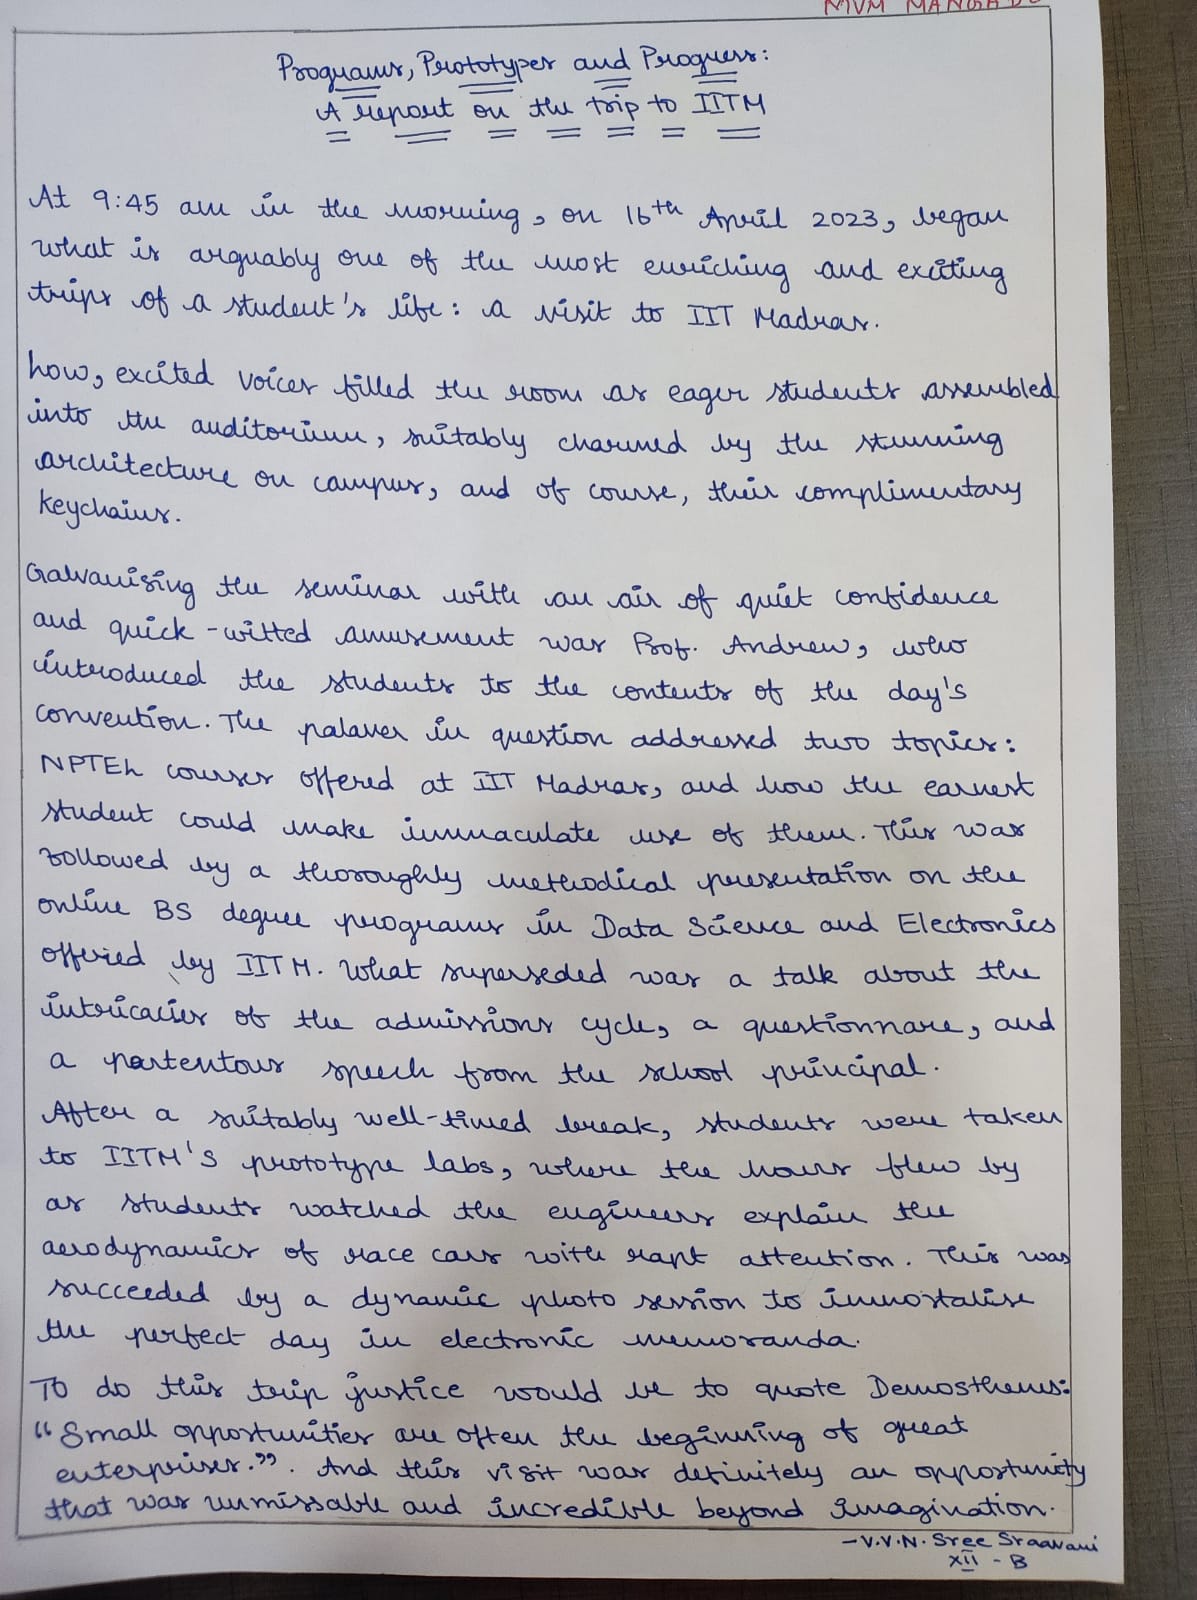 MVM MANGADU
Programs, Prototypes and Progress:
A report on the trip to IITM
At 9:45 am in the morning, on 16th April 2023, began
what is arguably one of the most enriching and exciting
trips of a student's life: a visit to IIT Madras.
Low, excited voices filled the room as eager students assembled
into the auditorium, suitably charmed by the stunning
architecture on campus, and of course, their complimentary
keychains.
Galvanising the seminar with an air of quiet confidence
and quick-witted amusement was Prof. Andrew, who
introduced the students to the contents of the day's
convention. The palaver in question addressed two topics:
NPTEL courses offered at IIT Madras, and how the earnest
student could make immaculate use of them. This was
followed by a thoroughly methodical presentation on the
online BS degree programs in Data Science and Electronics
offered by IITM. What superseded was a talk about the
intricacies of the admissions cycle, a questionnare, and
a portentous speech from the school principal.
After a suitably well-timed break, students were taken
to IITM's prototype labs, where the hours flew by
as students watched the engineers explain the
aerodynamics of race cars with rapt attention. This was
succeeded by a dynamic photo session to immortalise
the perfect day in electronic memoranda.
To do this trip justice would be to quote Demosthenes:
"Small opportunities are often the beginning of great
enterprises.". And this visit was definitely an opportunity
that was unmissable and incredible beyond imagination.
-V.V.N. Sree Sraavani
XII - B